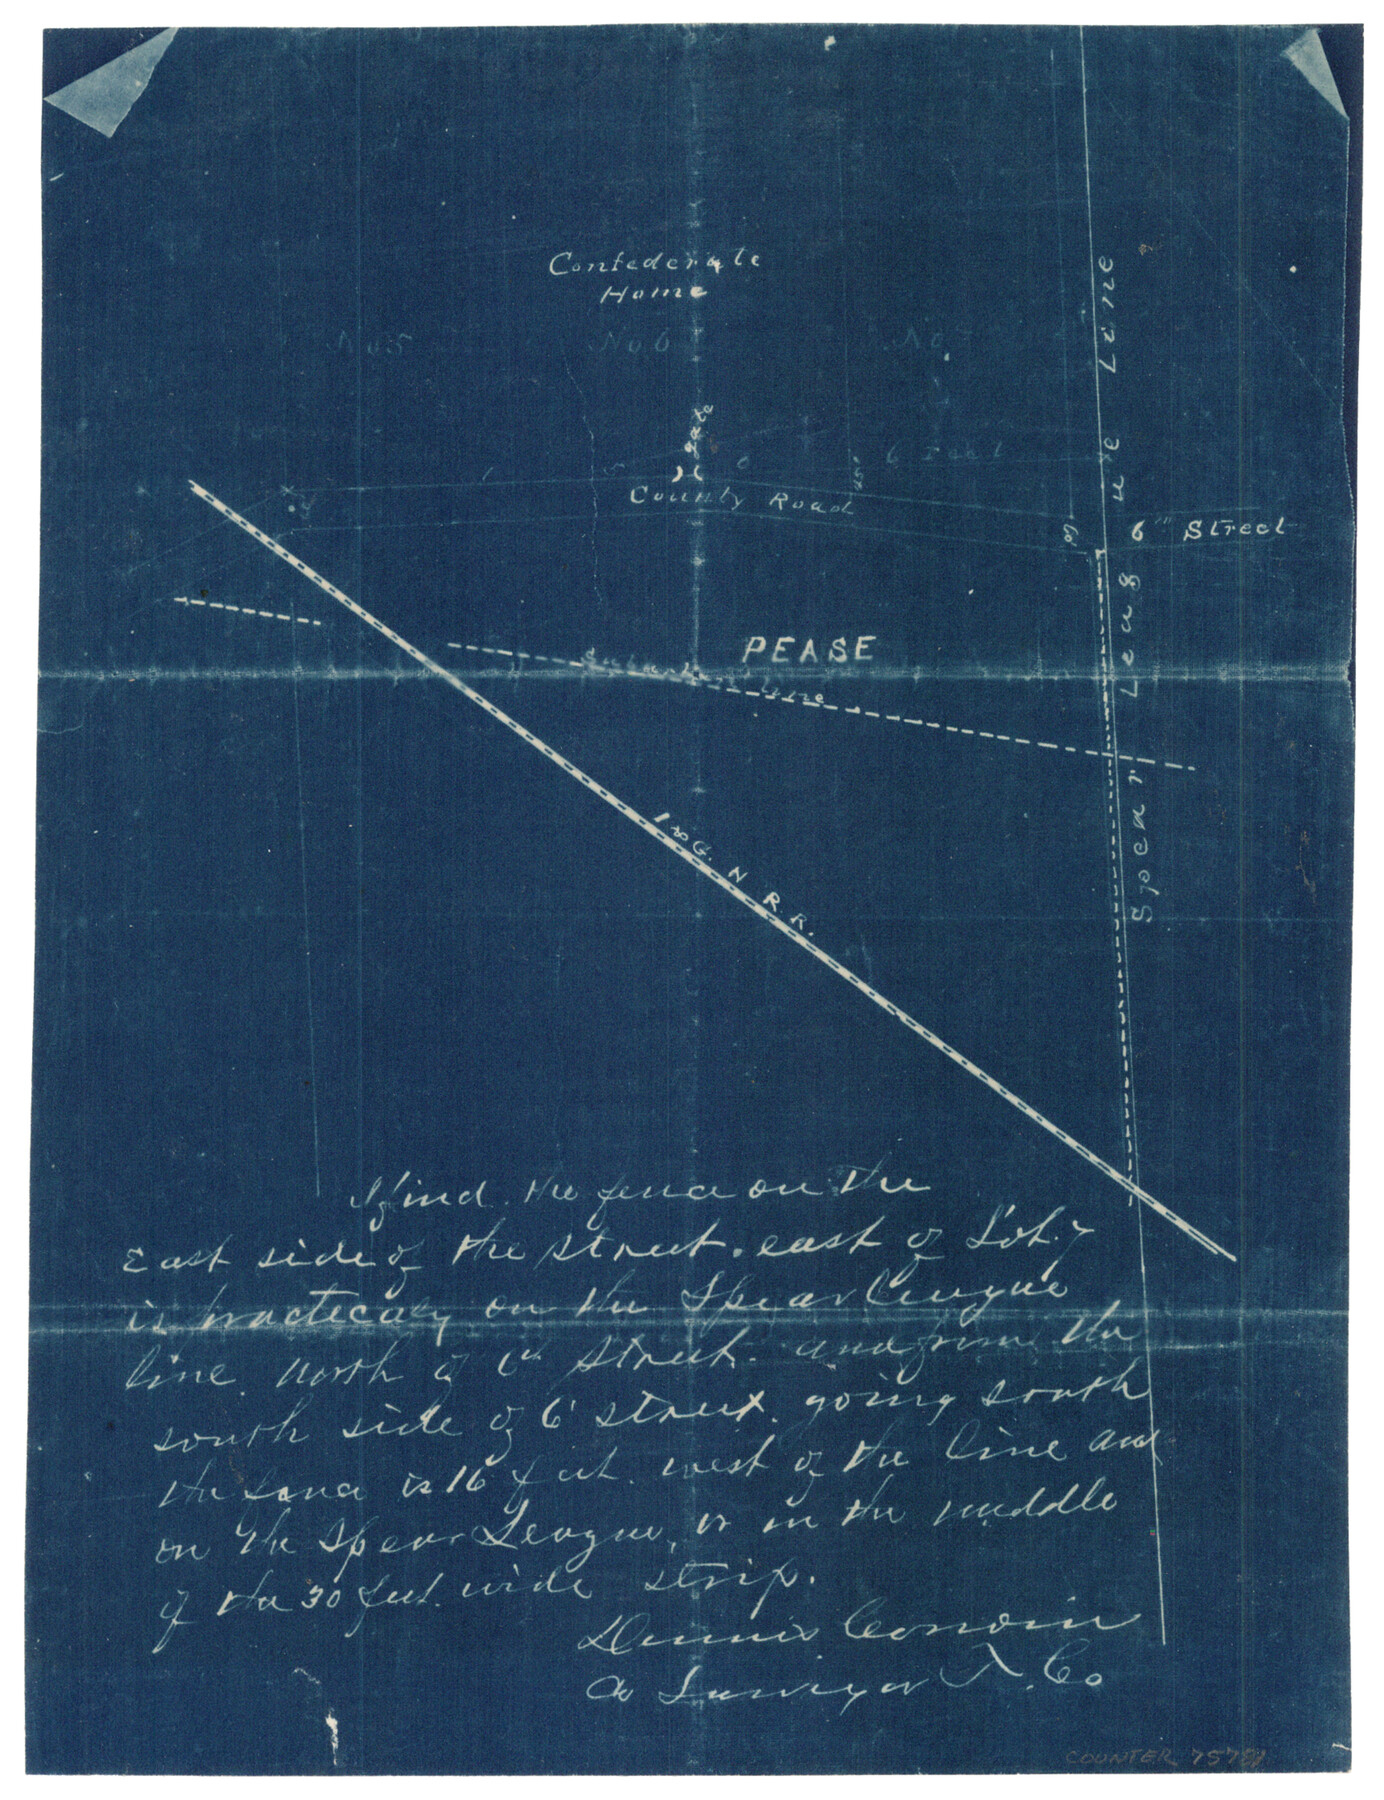 Confederate
Home
No 5 No 6 No
gate
6 Feet
County Road
6th Street
Spear League Line
PEASE
Line
I & G. N R. R.
I find the fence on the
East side of the street. east of Lot. 7
is practicaly on the Spear League
line. north of 6th Street. and from the
south side of 6 street. going south
the fence is 16 feet. west of the line and
on the Spear League, or in the middle
of the 30 feet. wide strip.
Dennis Corwin
Co Surveyor T. Co
COUNTER 757